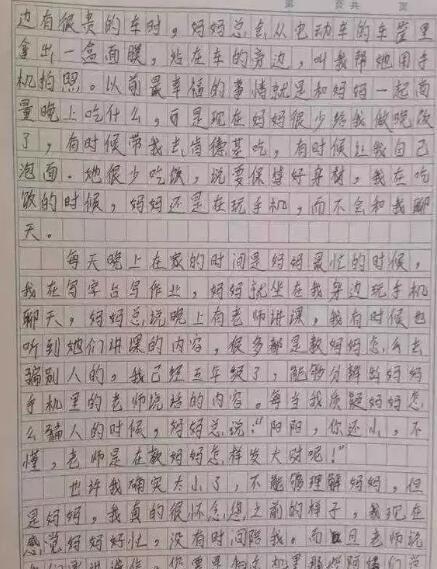 第 页共 页
边有很贵的车时，妈妈总会从电动车的车筐里
拿出一盒面膜，站在车的旁边，叫我帮她用手
机拍照。以前最幸福的事情就是和妈妈一起商
量晚上吃什么，可是现在妈妈很少给我做晚饭
了，有时候带我去肯德基吃，有时候让我自己
泡面。她很少吃饭，说要保持好身材，我在吃
饭的时候，妈妈还是在玩手机，而不会和我聊
天。
每天晚上在家的时间是妈妈最忙的时候，
我在写字台写作业，妈妈就坐在我身边玩手机
聊天，妈妈总说晚上有老师讲课，我有时候也
听到她们讲课的内容，很多都是教妈妈怎么去
骗别人的，我已经五年级了，能够分辨出妈妈
手机里的老师说话的内容。每当我质疑妈妈怎
么骗人的时候，妈妈总说：“阳阳，你还小，不
懂，老师是在教妈妈怎样发大财呢！”
也许我确实太小了，不能够理解妈妈，但
是妈妈，我真的很怀念您之前的样子，我现在
感觉妈妈好忙，没有时间陪我。而且老师说